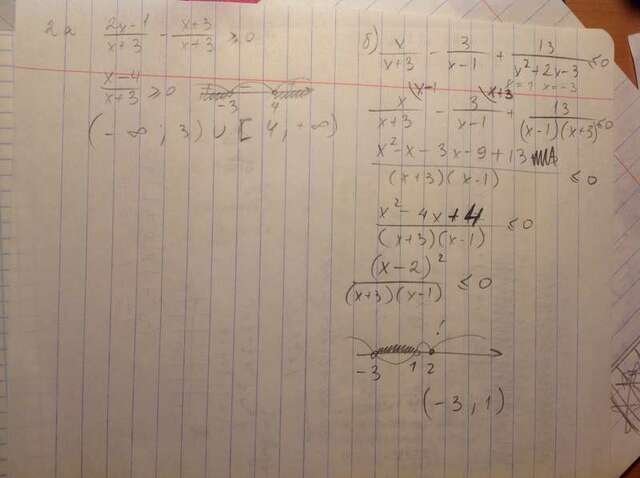 2a (2x-1)/(x+3) - (x+3)/(x+3) ≥ 0
(x-4)/(x+3) ≥ 0
-3 4
(-∞; 3) ∪ [4, +∞)
б) x/(x+3) - 3/(x-1) + 13/(x²+2x-3) ≤ 0
x=1 x=-3
x\x-1/(x+3) - 3\x+3/(x-1) + 13/((x-1)(x+3)) ≤ 0
(x²-x-3x-9+13)/((x+3)(x-1)) ≤ 0
(x²-4x+4)/((x+3)(x-1)) ≤ 0
(x-2)²/((x+3)(x-1)) ≤ 0
!
-3 1 2
(-3, 1)